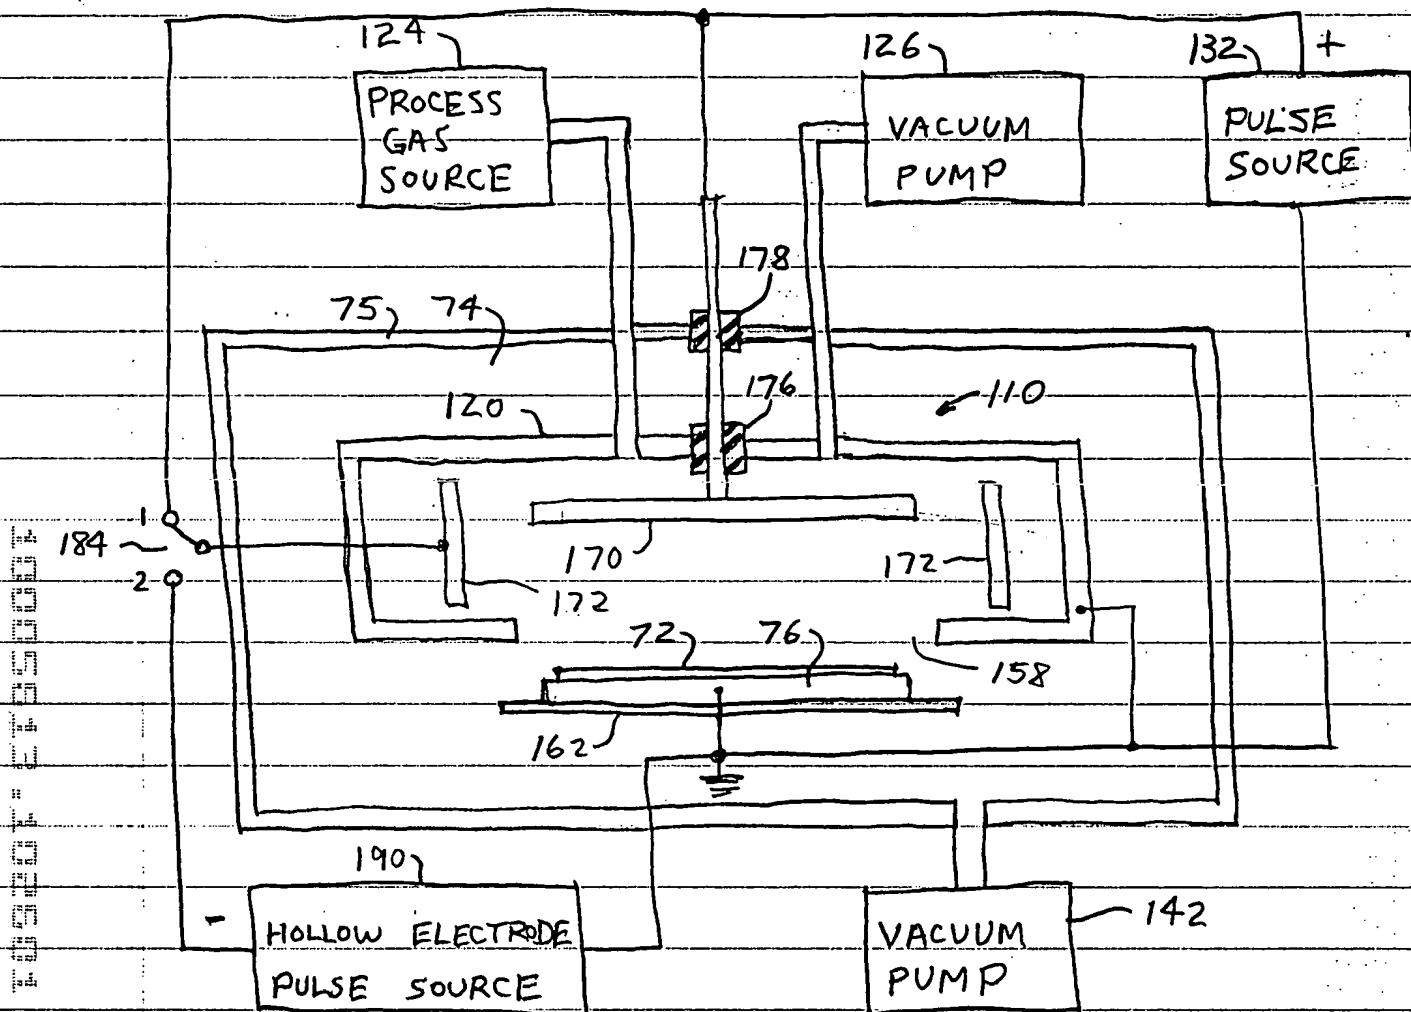 124
126
132
+
PROCESS
GAS
SOURCE
VACUUM
PUMP
PULSE
SOURCE
178
75
74
120
176
110
1
184
2
170
172
172
72
76
158
162
190
-
HOLLOW ELECTRODE
PULSE SOURCE
142
VACUUM
PUMP